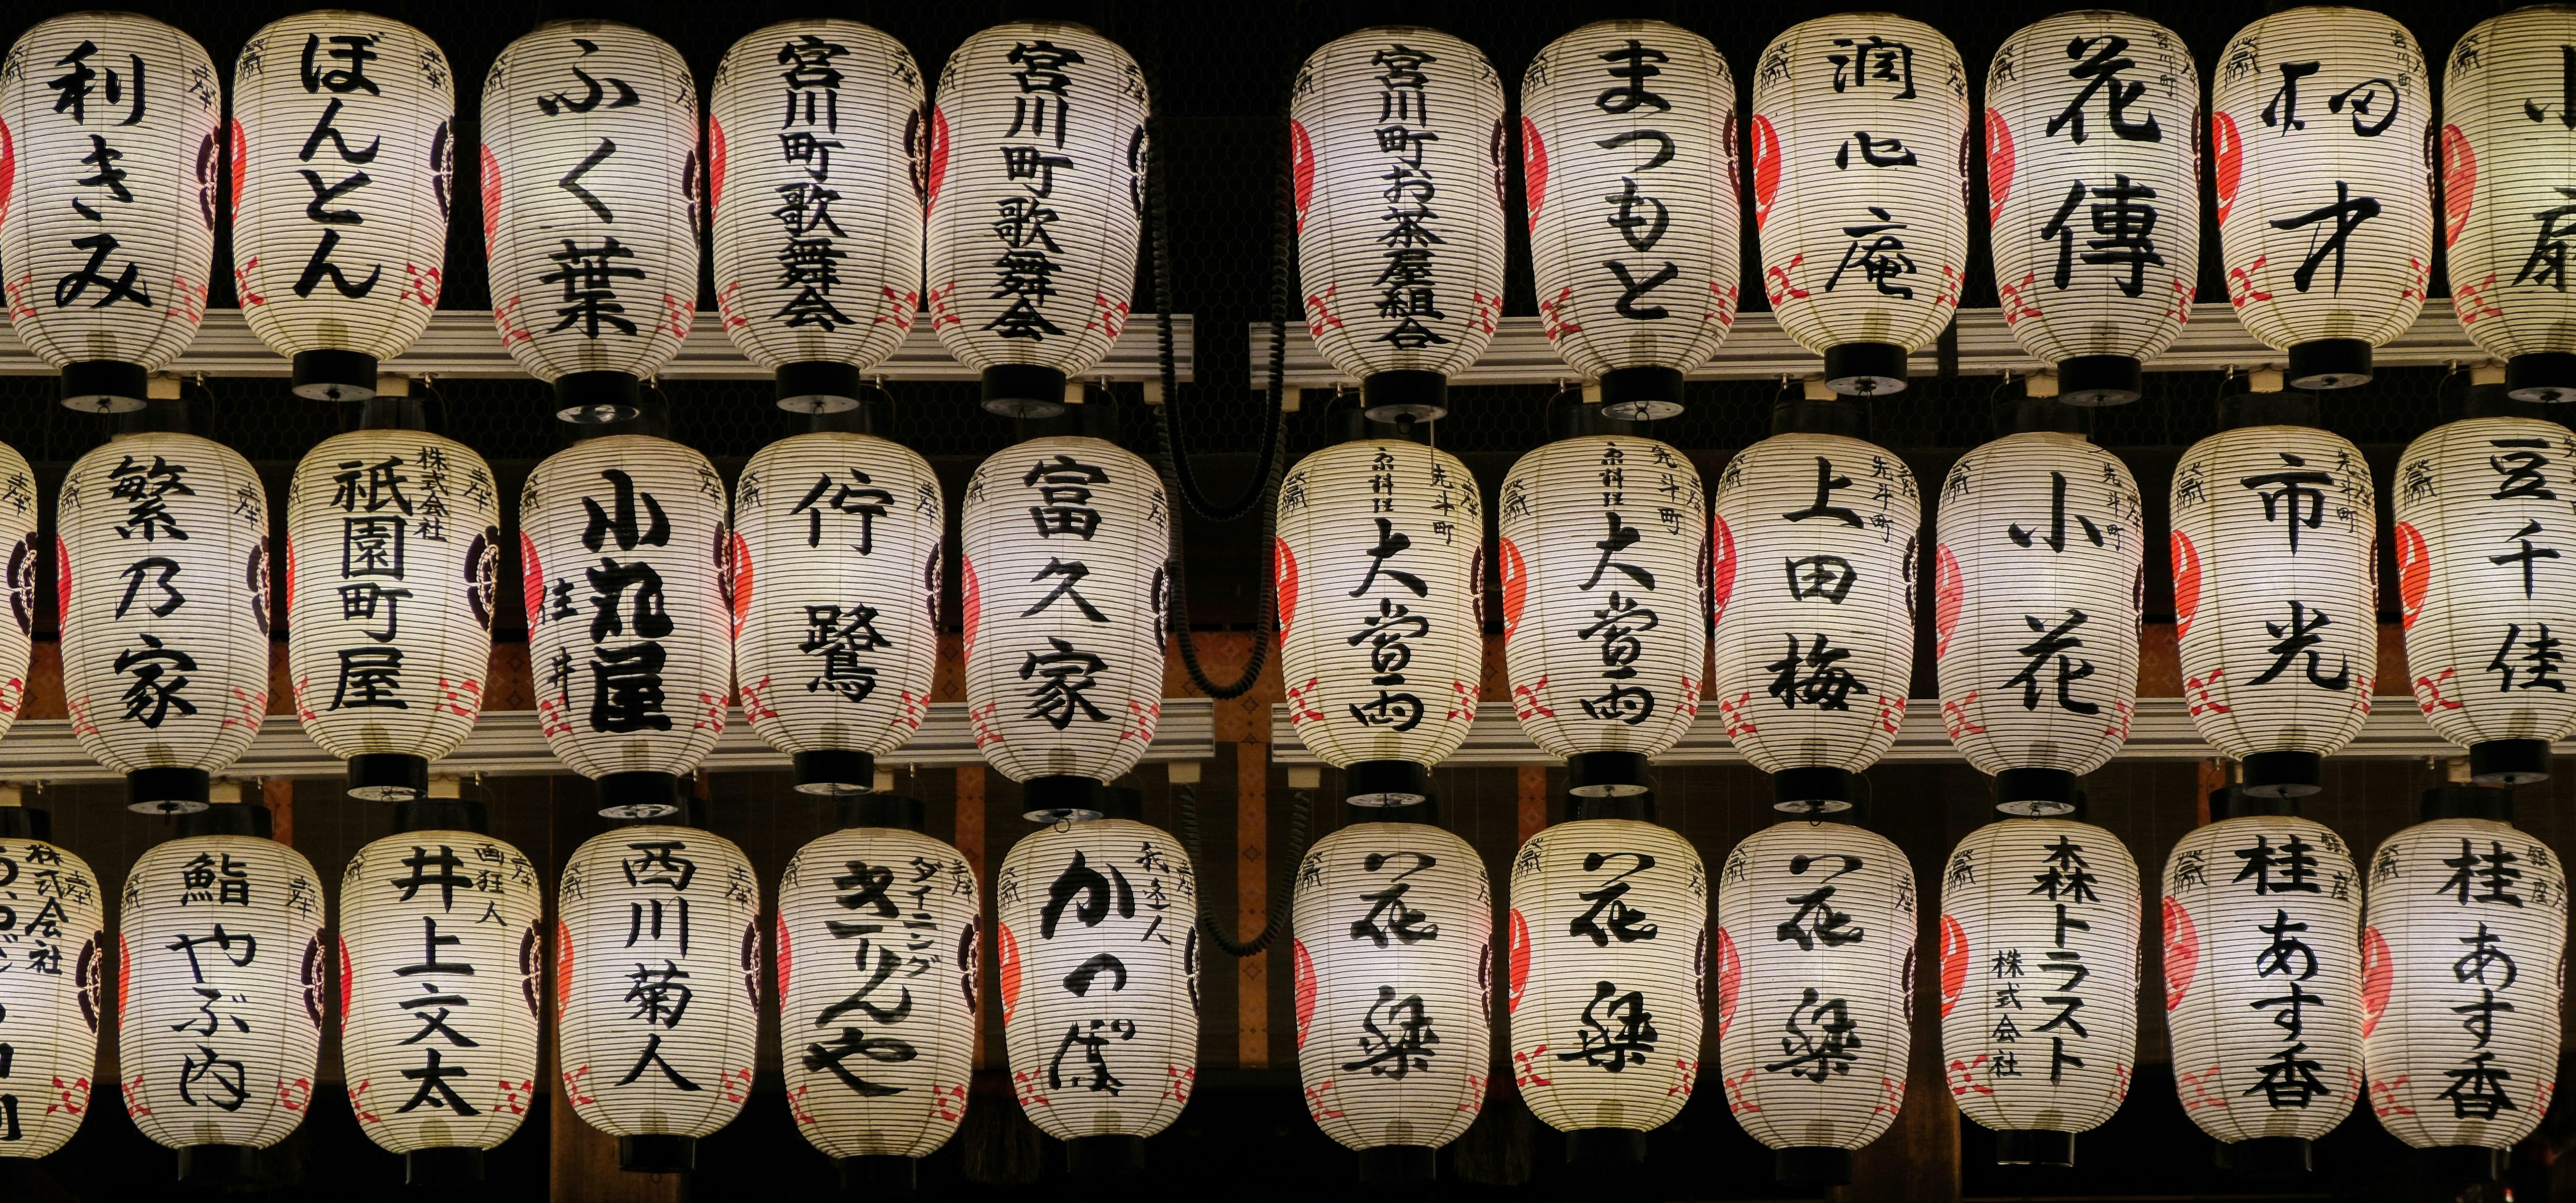 利きみ
ぼんとん
ふく葉
宮川町歌舞会
宮川町歌舞会
宮川町お茶屋組合
まつもと
潤心庵
花傳
才
繁乃家
株式会社
祇園町屋
小丸屋
住井
佇鷺
富久家
先斗町
京料理
大當両
先斗町
京料理
大當両
先斗町
上田梅
先斗町
小花
先斗町
市光
豆千佳
株式会社
鮨やぶ内
画狂人
井上文太
西川菊人
ダイニング
きりんや
かっぱ
花梁
花梁
花梁
森トラスト
株式会社
銀座
桂あす香
銀座
桂あす香